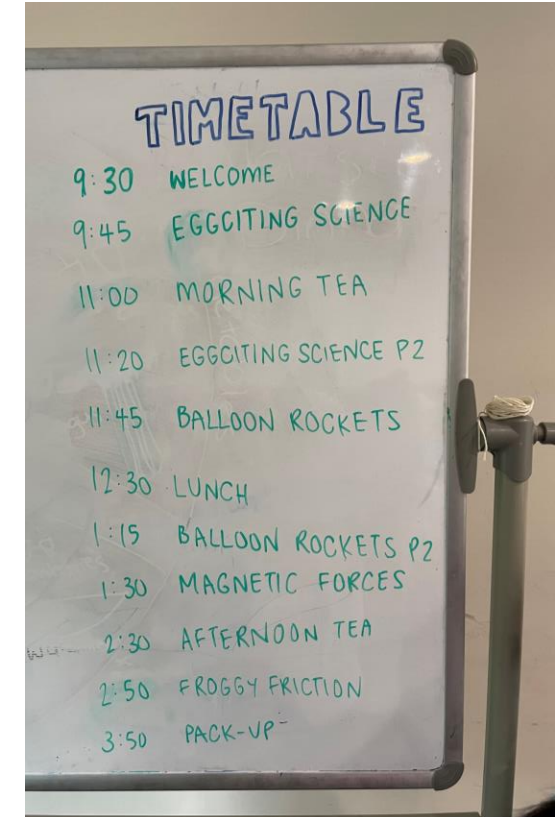 TIMETABLE
9:30 WELCOME
9:45 EGGCITING SCIENCE
11:00 MORNING TEA
11:20 EGGCITING SCIENCE P2
11:45 BALLOON ROCKETS
12:30 LUNCH
1:15 BALLOON ROCKETS P2
1:30 MAGNETIC FORCES
2:30 AFTERNOON TEA
2:50 FROGGY FRICTION
3:50 PACK-UP